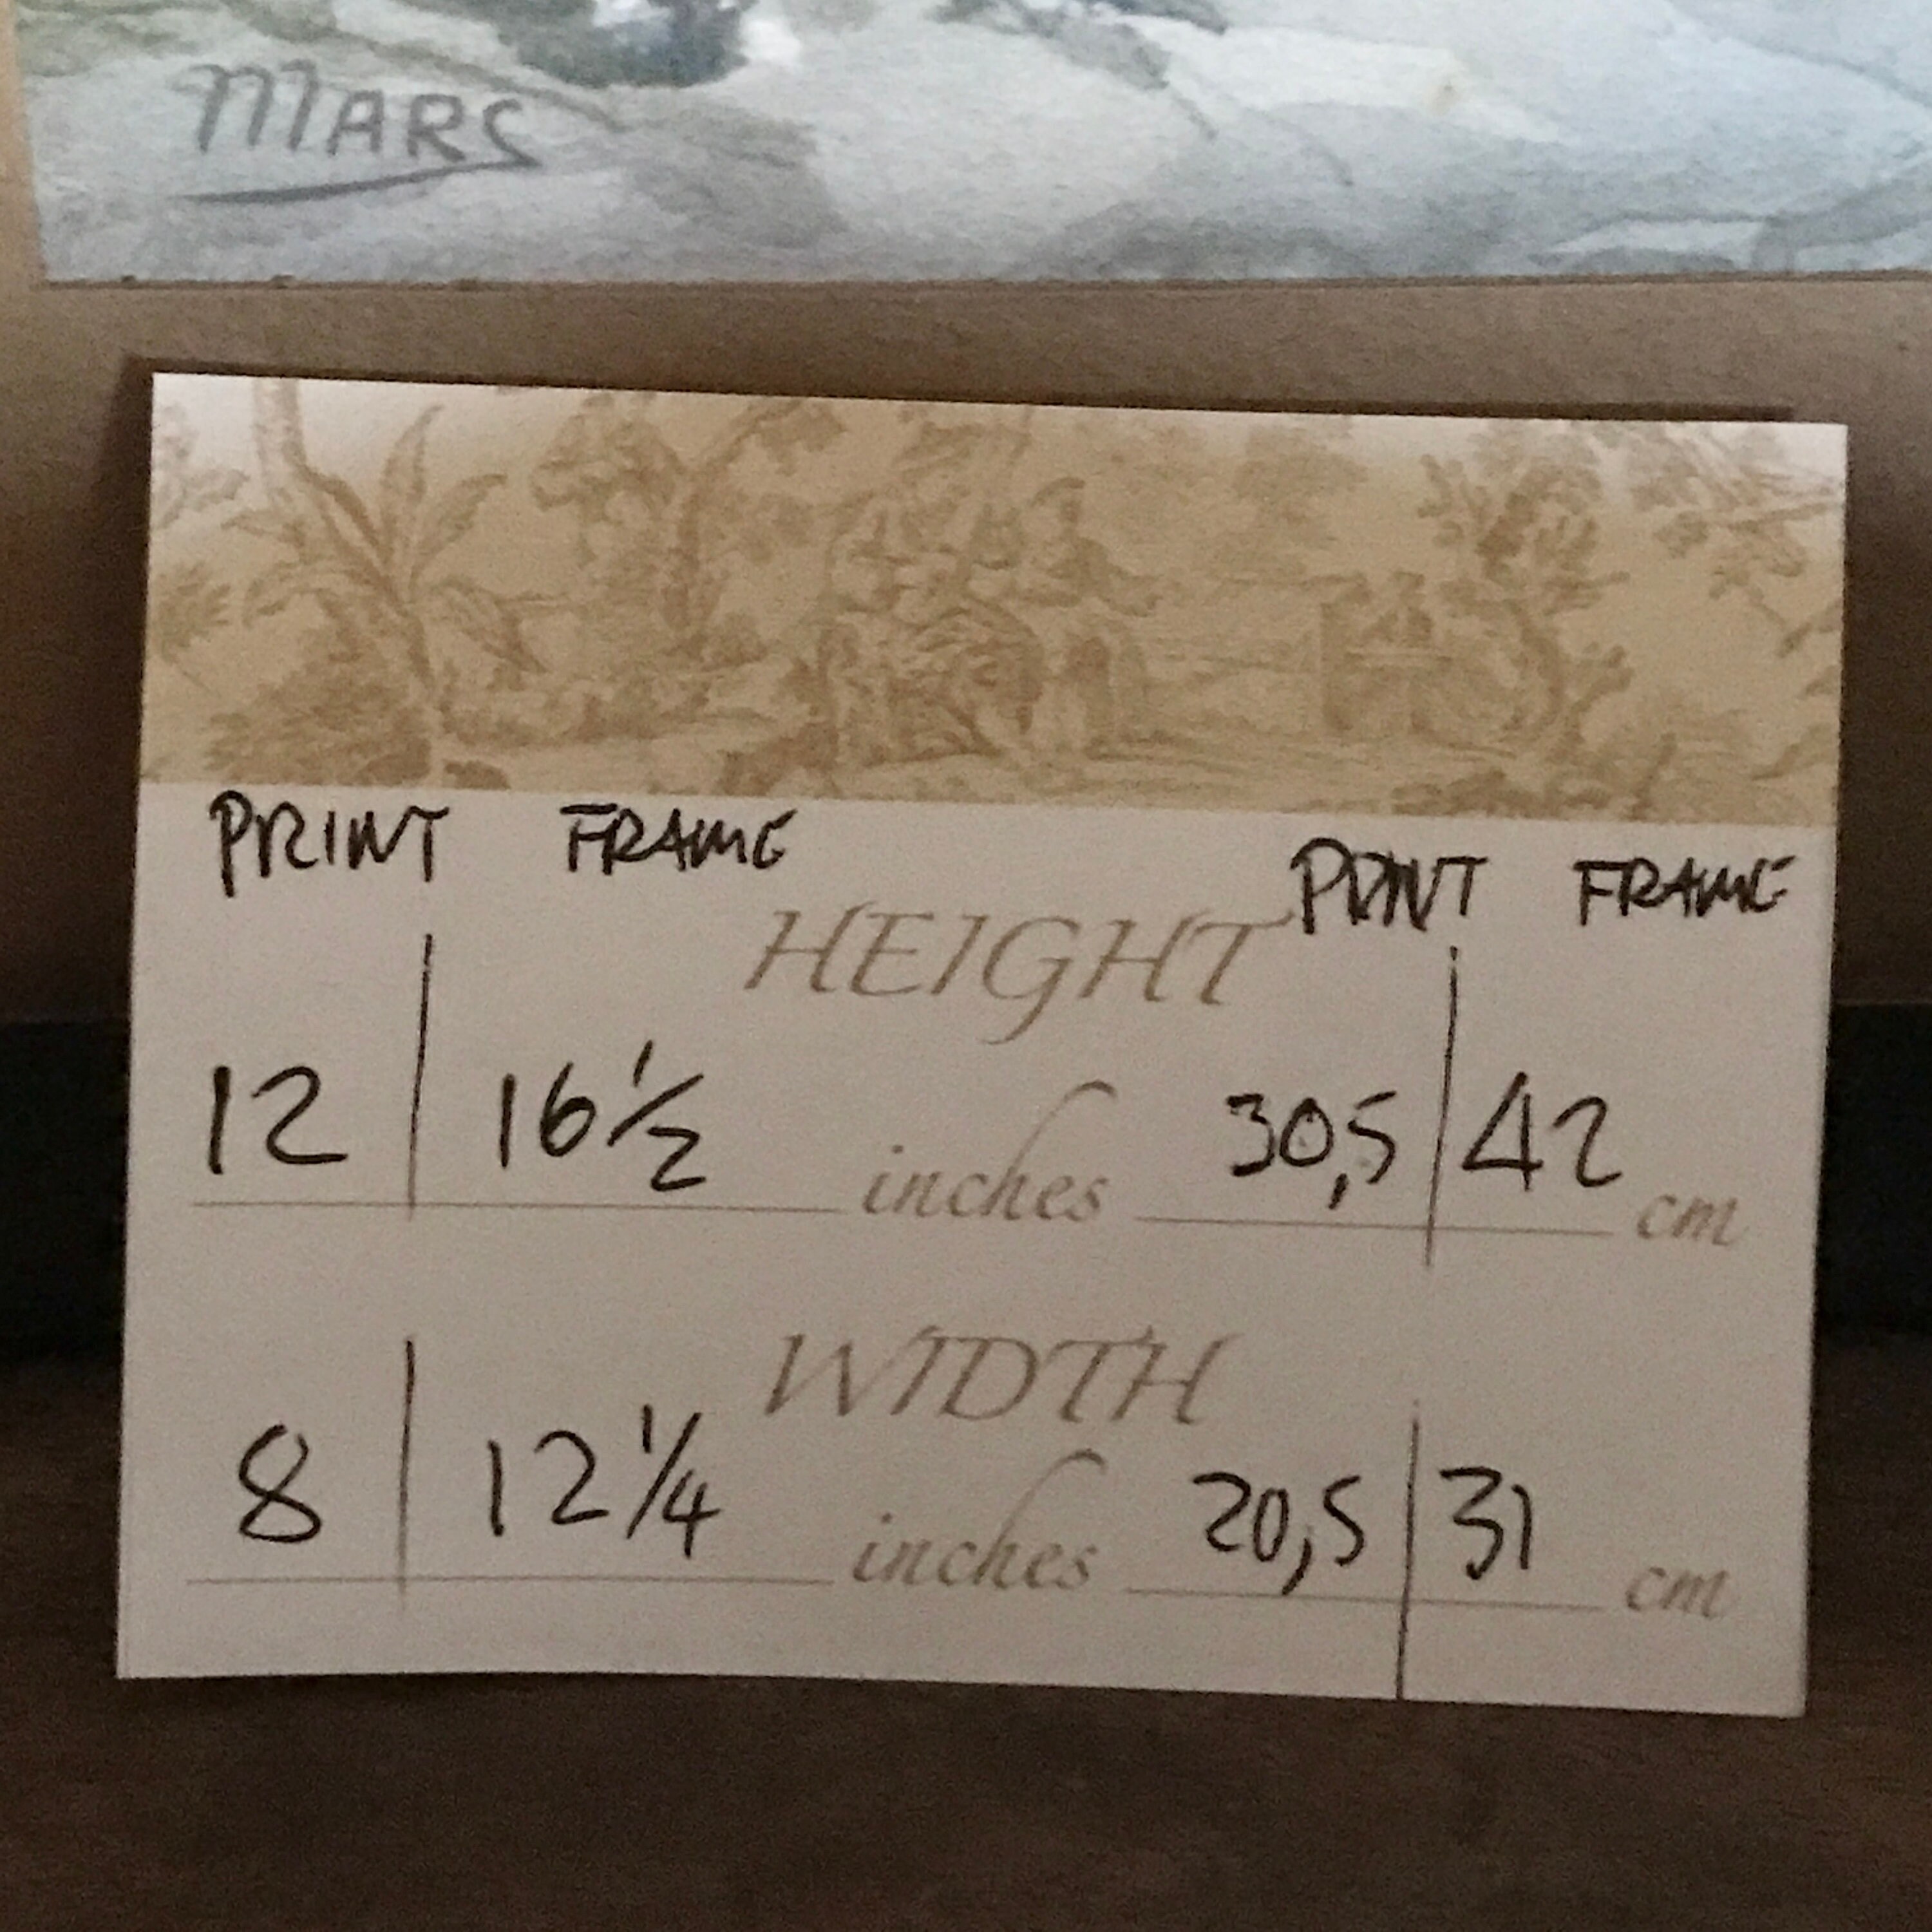 MARS
PRINT FRAME PRINT FRAME
HEIGHT
12 16 1/2 inches 30,5 42 cm
WIDTH
8 12 1/4 inches 20,5 31 cm